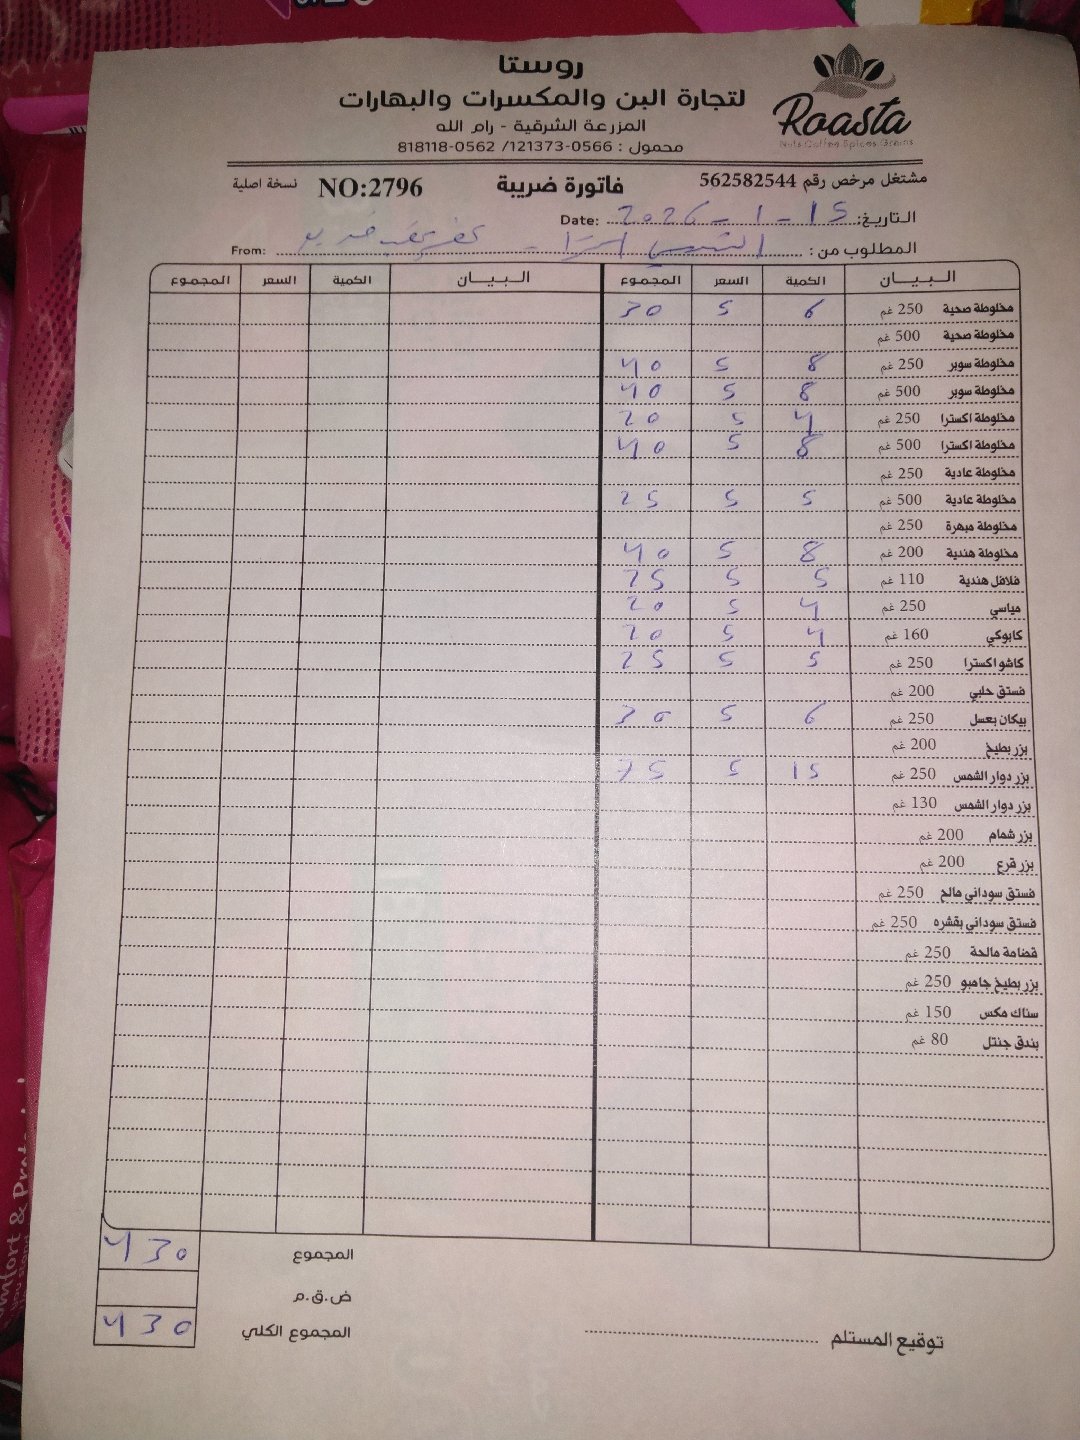 روستا
لتجارة البن والمكسرات والبهارات
المزرعة الشرقية - رام الله
محمول : 0566-121373/ 0562-818118
Roasta
Nuts Coffee Spices Grains
مشتغل مرخص رقم 562582544 فاتورة ضريبة NO:2796 نسخة اصلية
التاريخ: 15 - 1 - 2026 Date:
المطلوب من : From:
البيان الكمية السعر المجموع البيان الكمية السعر المجموع
مخلوطة صحية 250 غم 6 5 30
مخلوطة صحية 500 غم
مخلوطة سوبر 250 غم 8 5 40
مخلوطة سوبر 500 غم 8 5 40
مخلوطة اكسترا 250 غم 4 5 20
مخلوطة اكسترا 500 غم 8 5 40
مخلوطة عادية 250 غم
مخلوطة عادية 500 غم 5 5 25
مخلوطة مبهرة 250 غم
مخلوطة هندية 200 غم 8 5 40
فلافل هندية 110 غم 5 5 25
مياسي 250 غم 4 5 20
كابوكي 160 غم 4 5 20
كاشو اكسترا 250 غم 5 5 25
فستق حلبي 200 غم
بيكان بعسل 250 غم 6 5 30
بزر بطيخ 200 غم
بزر دوار الشمس 250 غم 15 5 75
بزر دوار الشمس 130 غم
بزر شمام 200 غم
بزر قرع 200 غم
فستق سوداني مالح 250 غم
فستق سوداني بقشره 250 غم
قضامة مالحة 250 غم
بزر بطيخ جامبو 250 غم
سناك مكس 150 غم
بندق جنتل 80 غم
المجموع 430
ض.ق.م
المجموع الكلي 430
توقيع المستلم